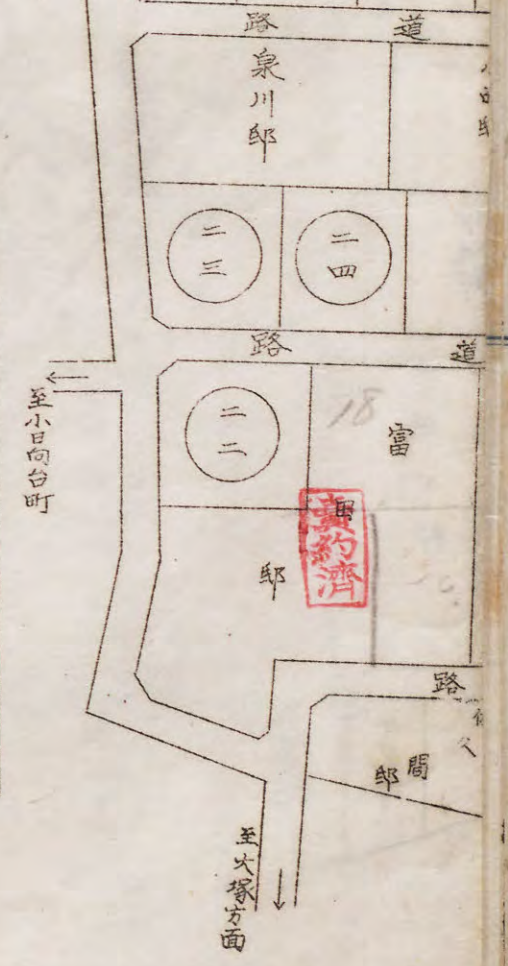 道路
泉川邸
邸
二三
二四
道路
至小日向台町
二二
18
富田邸
賣約済
路
久間邸
至大塚方面